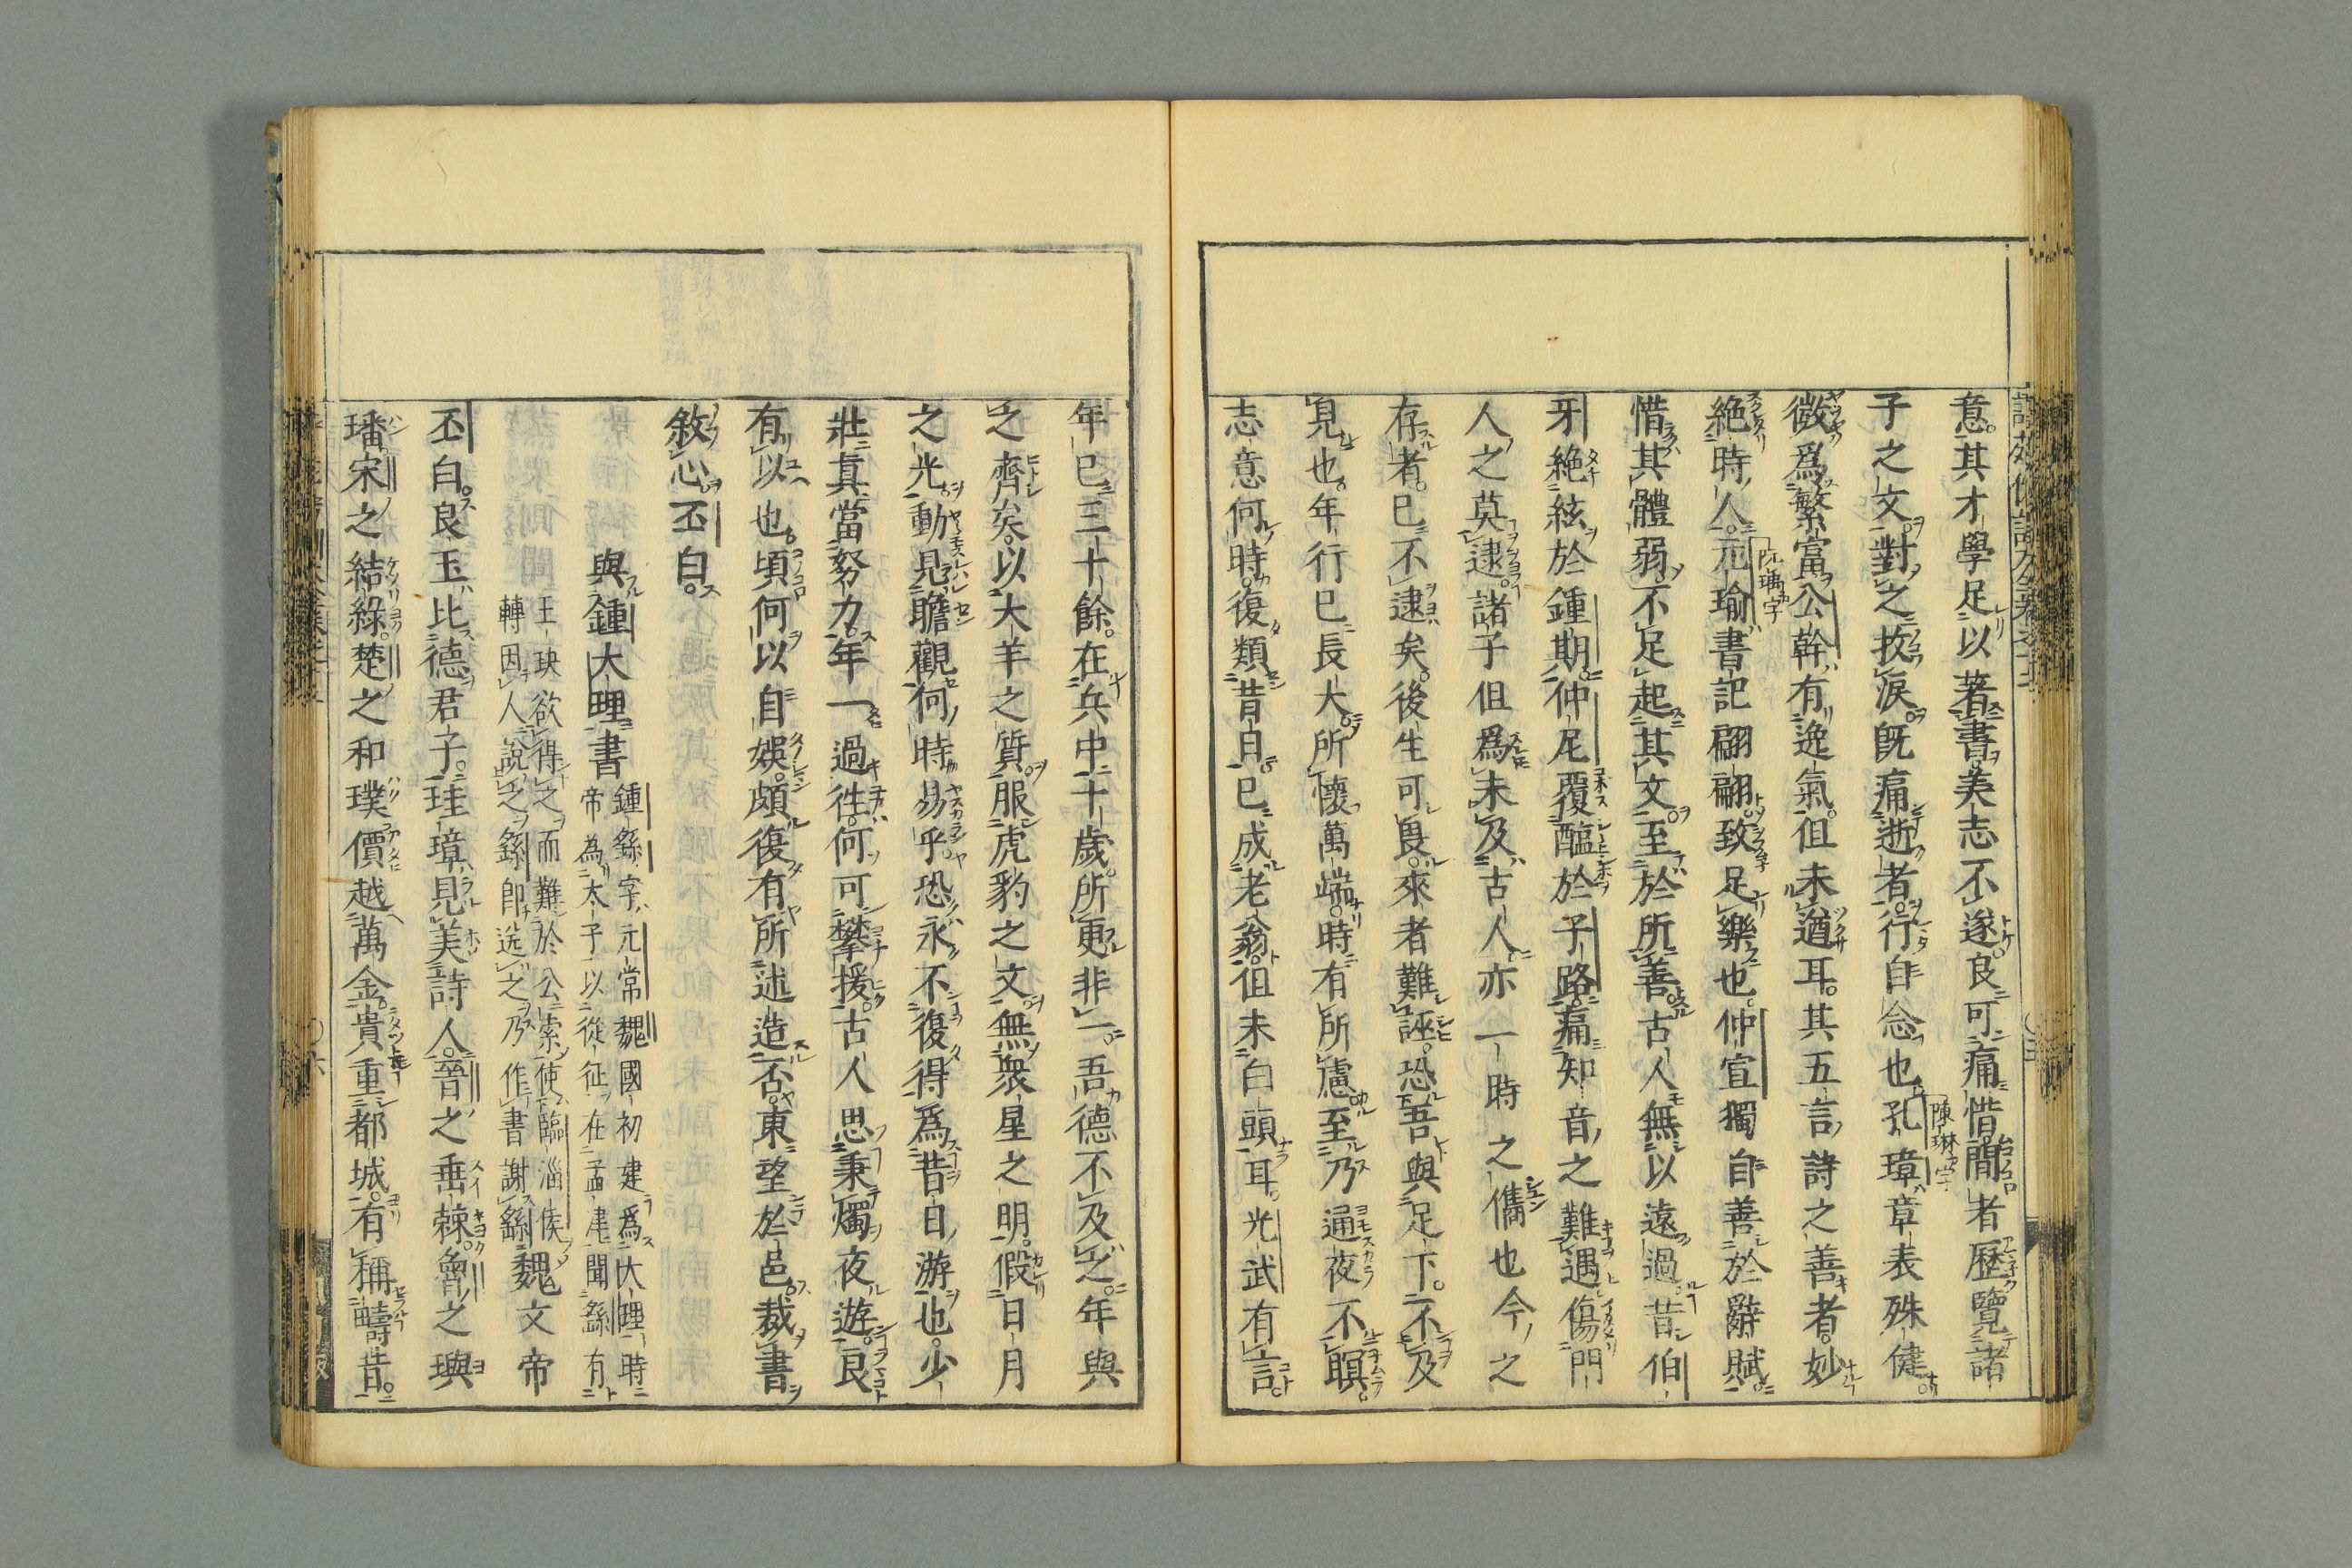 意其才學足以著書美志不遂良可痛惜間者歷覽諸
子之文對之抆淚既痛逝者行自念也孔璋章表殊健
陳琳字
微爲繁富公幹有逸氣但未遒耳其五言詩之善者妙
絶時人元瑜書記翩翩致足樂也仲宣獨自善於辭賦
阮瑀字
惜其體弱不足起其文至於所善古人無以遠過昔伯
牙絶絃於鍾期仲尼覆醢於子路痛知音之難遇傷門
人之莫逮諸子但爲未及古人亦一時之儁也今之
存者已不逮矣後生可畏來者難誣恐吾與足下不及
見也年行已長大所懷萬端時有所慮至乃通夜不瞑
志意何時復類昔日已成老翁但未白頭耳光武有言
年已三十餘在兵中十歲所更非一吾德不及之年與
之齊矣以犬羊之質服虎豹之文無衆星之明假日月
之光動見瞻觀何時易乎恐永不復得爲昔日游也少
壯真當努力年一過往何可攀援古人思秉燭夜遊良
有以也頃何以自娛頗復有所述造否東望於邑裁書
敘心丕白
與鍾大理書
鍾繇字元常魏國初建爲大理時
帝為太子以從征在孟津聞繇有
玉玦欲得之而難於公索使臨淄侯
轉因人說之繇即送之乃作書謝繇
魏文帝
丕白良玉比德君子珪璋見美詩人晉之垂棘魯之璵
璠宋之結綠楚之和璞價越萬金貴重都城有稱疇昔